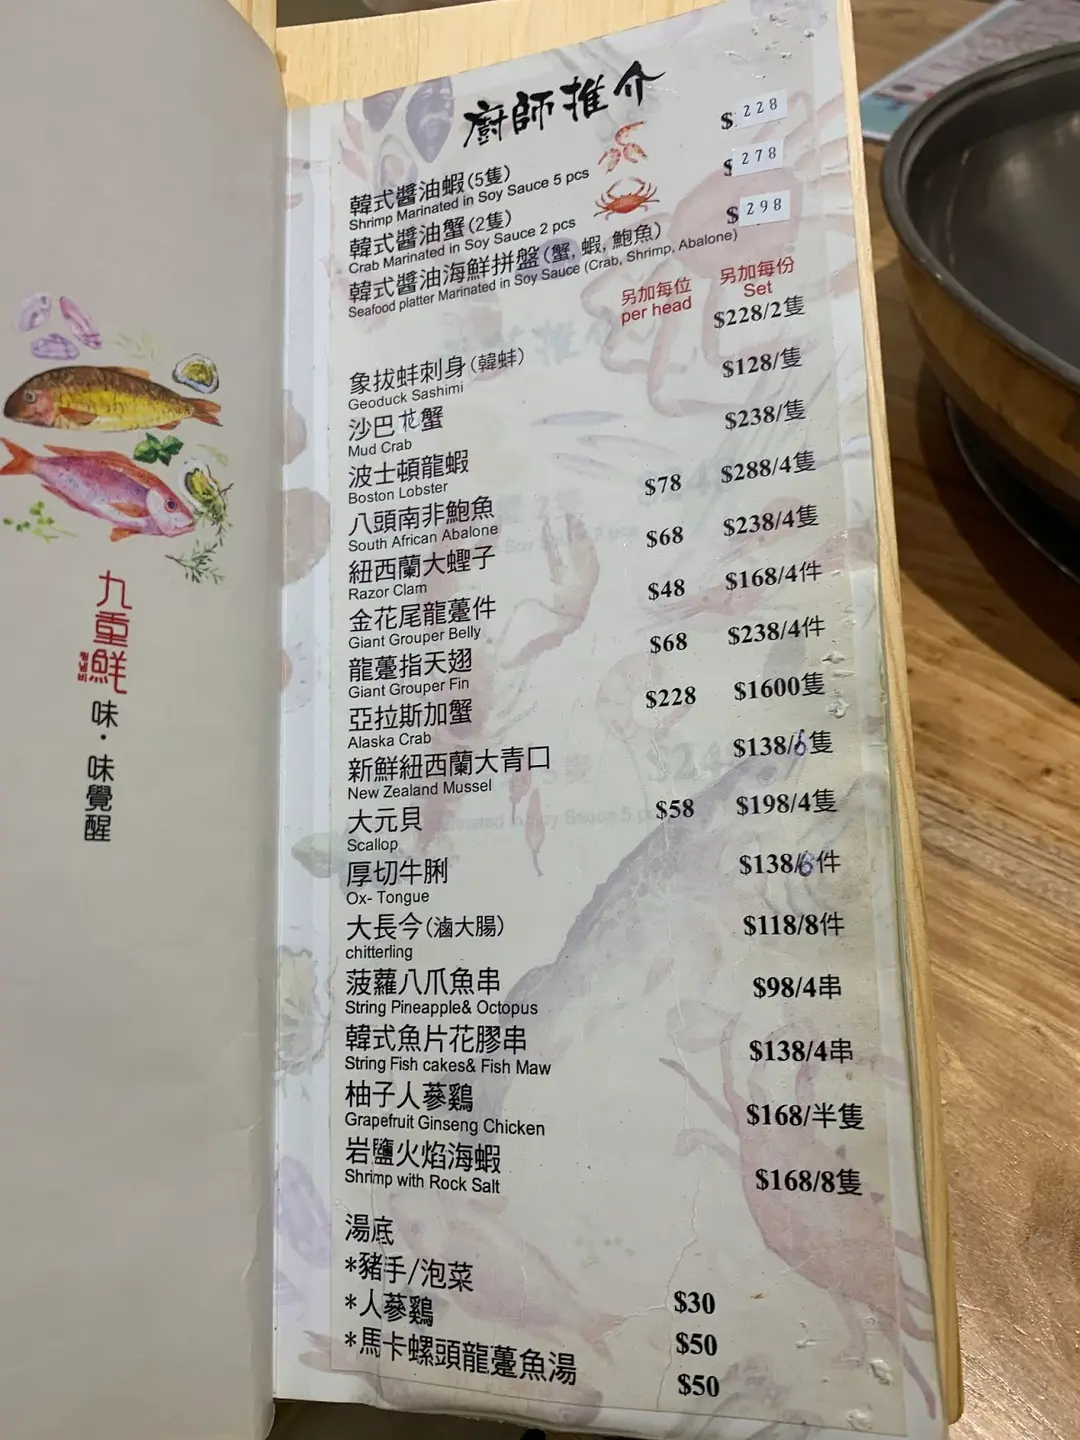 九重鮮
味·味覺醒
廚師推介
韓式醬油蝦(5隻) $228
Shrimp Marinated in Soy Sauce 5 pcs
韓式醬油蟹(2隻) $278
Crab Marinated in Soy Sauce 2 pcs
韓式醬油海鮮拼盤(蟹, 蝦, 鮑魚) $298
Seafood platter Marinated in Soy Sauce (Crab, Shrimp, Abalone)
另加每位 另加每份
per head Set
象拔蚌刺身(韓蚌) $228/2隻
Geoduck Sashimi
沙巴花蟹 $128/隻
Mud Crab
波士頓龍蝦 $238/隻
Boston Lobster
八頭南非鮑魚 $78 $288/4隻
South African Abalone
紐西蘭大蟶子 $68 $238/4隻
Razor Clam
金花尾龍躉件 $48 $168/4件
Giant Grouper Belly
龍躉指天翅 $68 $238/4件
Giant Grouper Fin
亞拉斯加蟹 $228 $1600隻
Alaska Crab
新鮮紐西蘭大青口 $138/6隻
New Zealand Mussel
大元貝 $58 $198/4隻
Scallop
厚切牛脷 $138/6件
Ox- Tongue
大長今(滷大腸) $118/8件
chitterling
菠蘿八爪魚串 $98/4串
String Pineapple& Octopus
韓式魚片花膠串 $138/4串
String Fish cakes& Fish Maw
柚子人蔘鷄 $168/半隻
Grapefruit Ginseng Chicken
岩鹽火焰海蝦 $168/8隻
Shrimp with Rock Salt
湯底
*豬手/泡菜 $30
*人蔘鷄 $50
*馬卡螺頭龍躉魚湯 $50